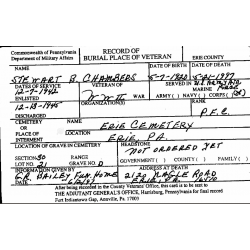 Commonwealth of Pennsylvania
Department of Military Affairs
RECORD OF
BURIAL PLACE OF VETERAN
ERIE COUNTY
NAME
STEWART B. CHAMBERS
DATE OF BIRTH
5-7-1920
DATE OF DEATH
5-21-1997
DATES OF SERVICE
12-7-1942
ENLISTED
12-18-1945
DISCHARGED
W.W. II WAR
SERVED IN
ARMY ( ) NAVY ( ) CORPS ( )
MARINE
ORGANIZATION(S)
RANK
P.F.C.
CEMETERY
OR
PLACE OF
INTERMENT
NAME
ERIE CEMETERY
LOCATION
ERIE PA.
LOCATION OF GRAVE IN CEMETERY
SECTION 50
LOT 21
GRAVE D
HEADSTONE
NOT ORDERED YET
GOVERNMENT ( ) COUNTY ( ) FAMILY ( )
INFORMATION GIVEN BY
DATE
ADDRESS
After being recorded in the County Veterans' Office, this card is to be sent to
THE ADJUTANT GENERAL'S OFFICE, Harrisburg, Pennsylvania for final record
Fort Indiantown Gap, Annville, Pa. 17003